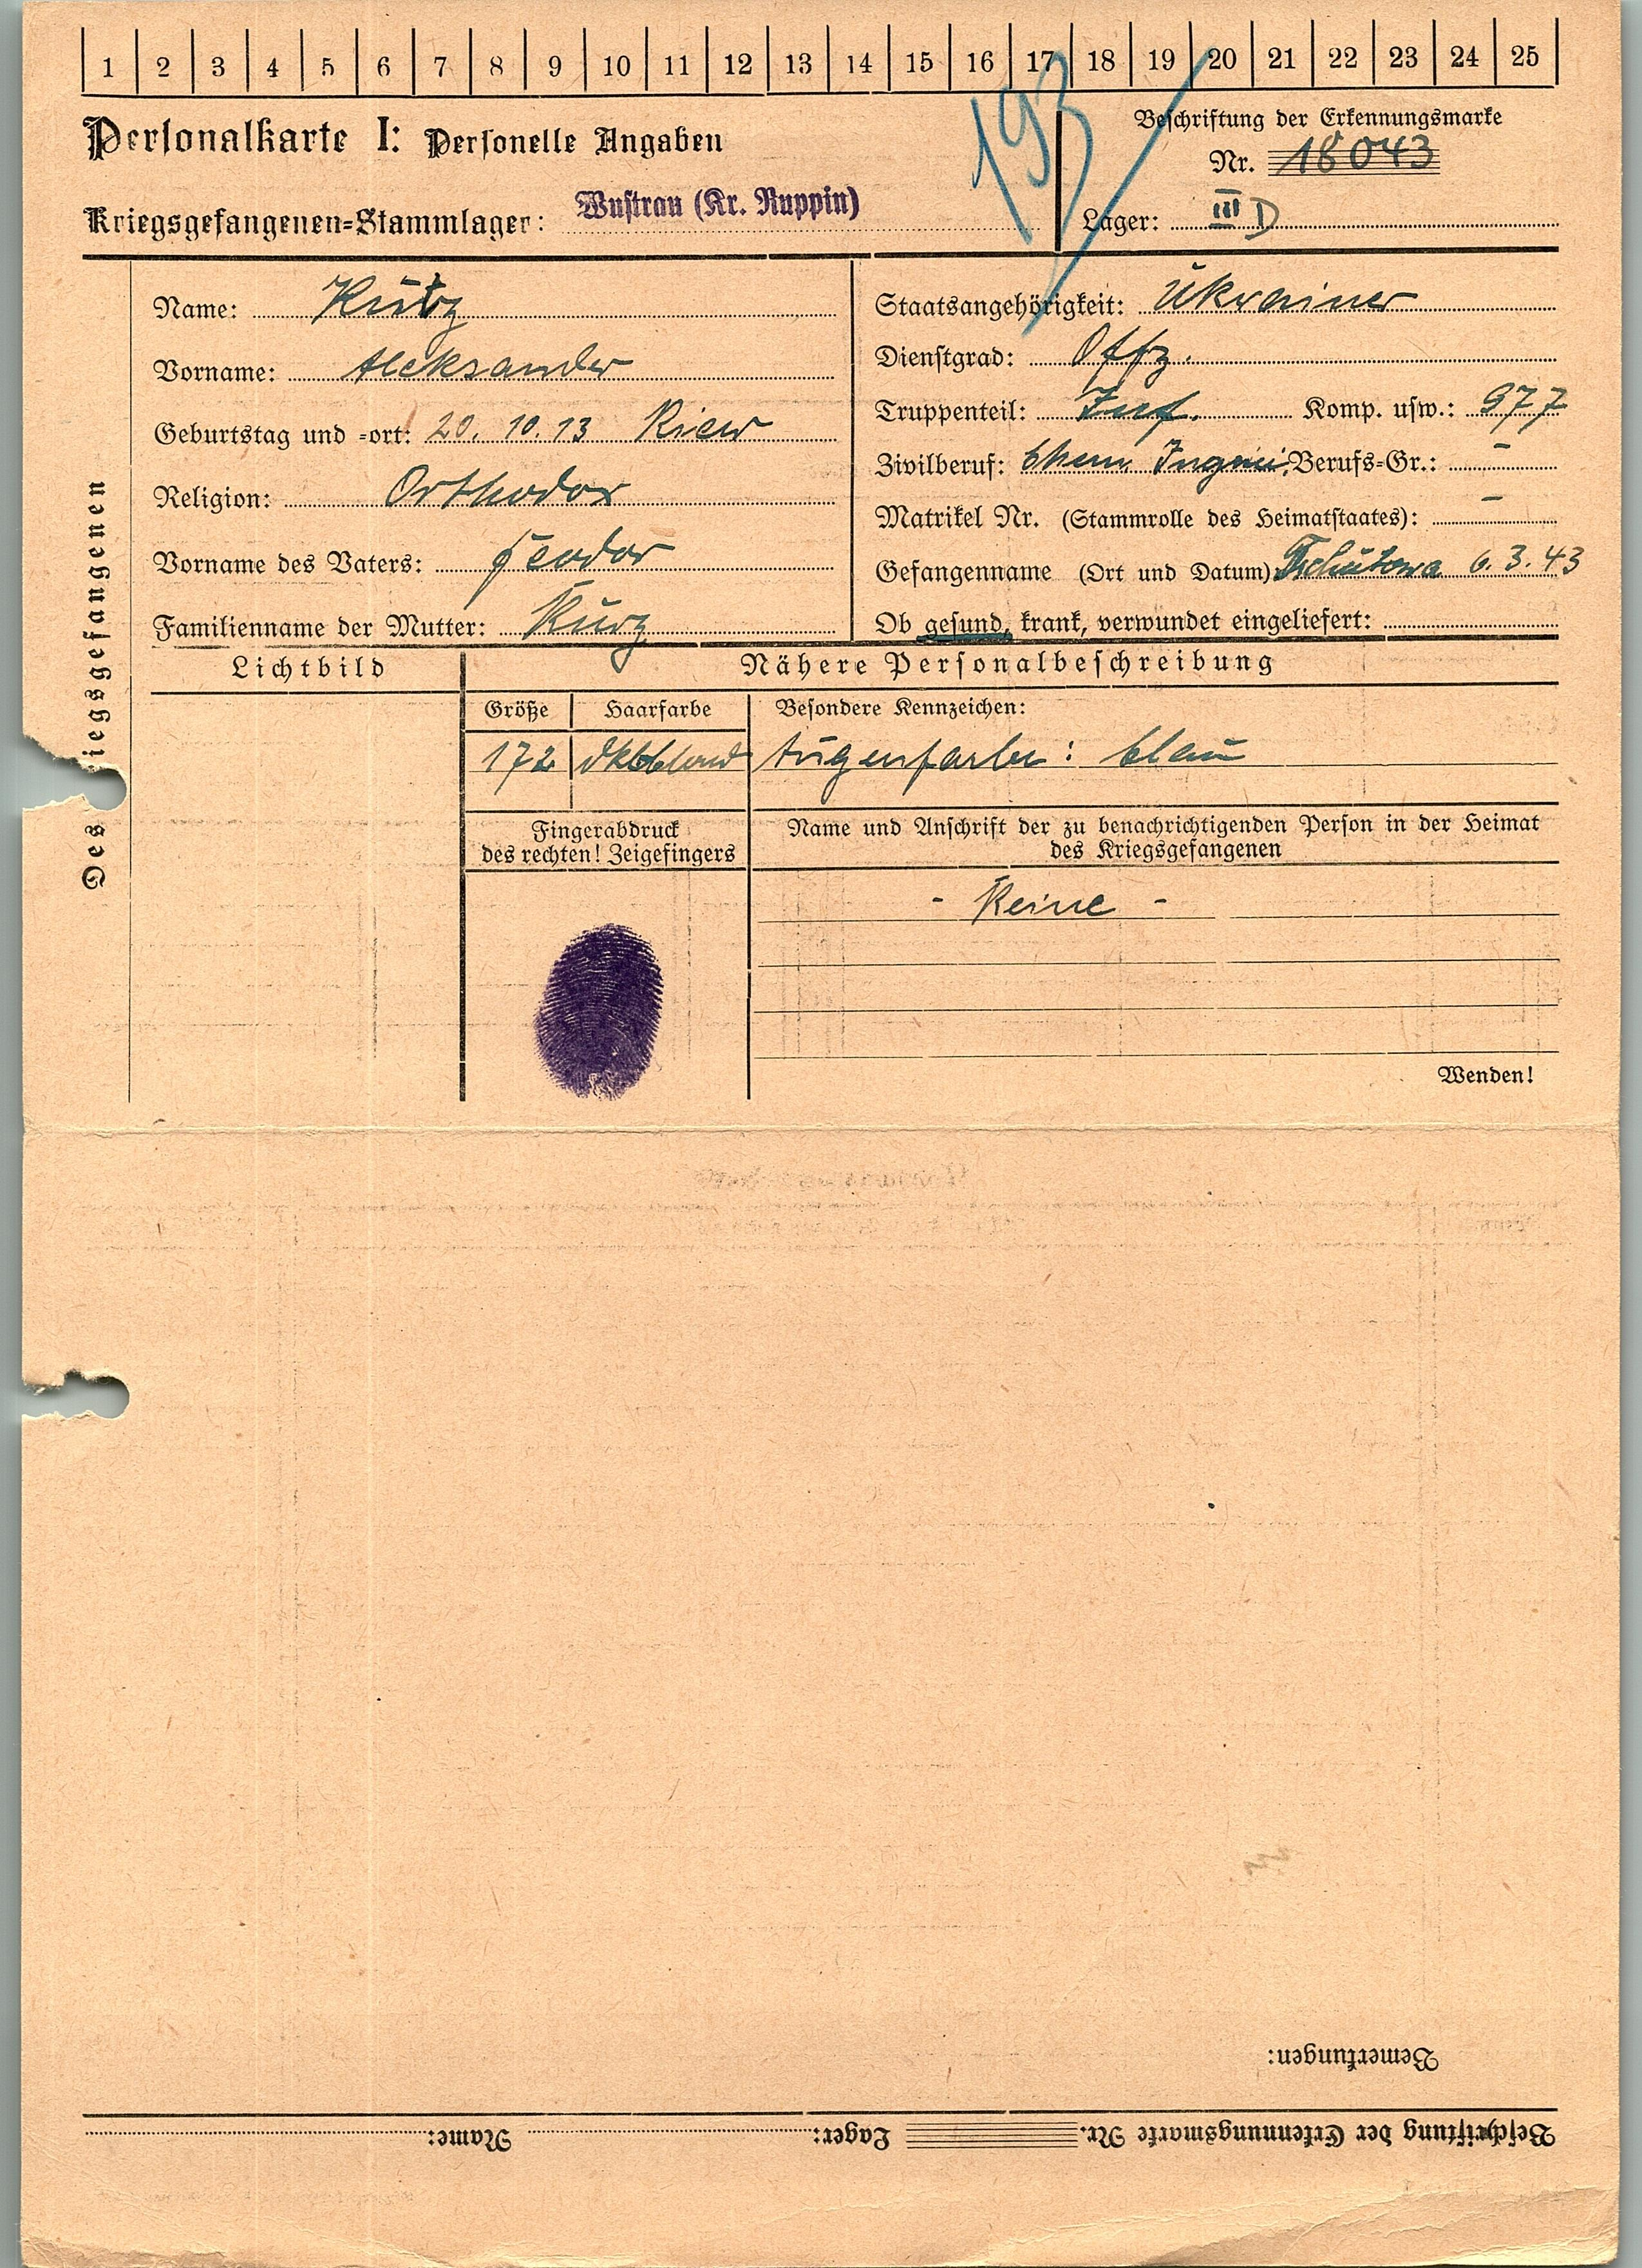 1 2 3 4 5 6 7 8 9 10 11 12 13 14 15 16 17 18 19 20 21 22 23 24 25
193
Personalkarte I: Personelle Angaben
Beschriftung der Erkennungsmarke
Nr. 18043
Kriegsgefangenen-Stammlager: Wustrau (Kr. Ruppin)
Lager: III D
Des Kriegsgefangenen
Name: Kurz
Vorname: Aleksander
Geburtstag und -ort: 20. 10. 13 Kiew
Religion: Orthodox
Vorname des Vaters: Feodor
Familienname der Mutter: Kurz
Staatsangehörigkeit: Ukrainer
Dienstgrad: Offz.
Truppenteil: Inf. Komp. usw.: 977
Zivilberuf: Chem. Berufs-Gr.: -
Matrikel Nr. (Stammrolle des Heimatstaates): -
Gefangenname (Ort und Datum): 6. 3. 43
Ob gesund, krank, verwundet eingeliefert:
Lichtbild
Nähere Personalbeschreibung
Größe Haarfarbe Besondere Kennzeichen:
172 dklblond Augenfarbe: blau
Fingerabdruck
des rechten! Zeigefingers
Name und Anschrift der zu benachrichtigenden Person in der Heimat
des Kriegsgefangenen
- Keine -
Wenden!
Bemerkungen:
Beschriftung der Erkennungsmarke Nr. Lager: Name: